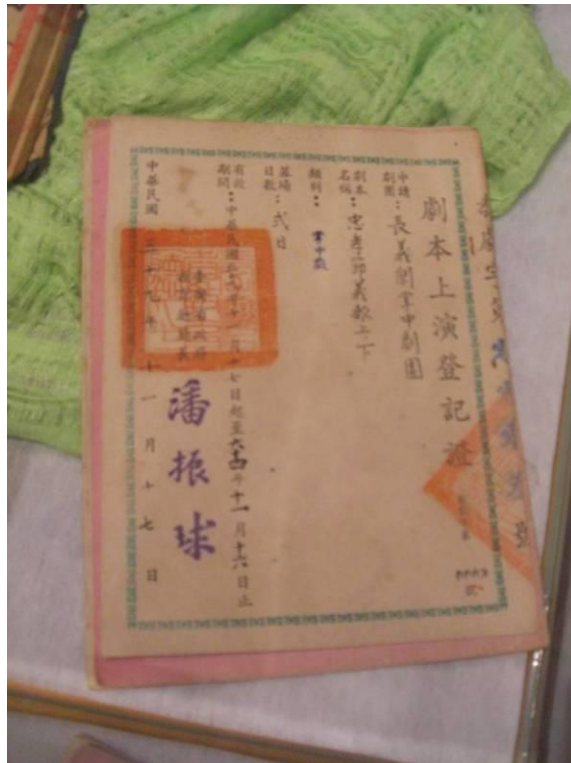 劇本上演登記證
申請劇團：長義閣掌中劇團
劇本名稱：忠孝節義報上下
類別：掌中戲
幕場日數：弍日
有效期間：中華民國五十九年十一月十七日起至六十四年十一月十六日止
臺灣省政府
教育廳廳長
潘振球
中華民國五十九年十一月十七日